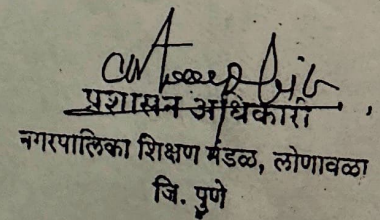 प्रशासन अधिकारी
नगरपालिका शिक्षण मंडळ, लोणावळा
जि. पुणे